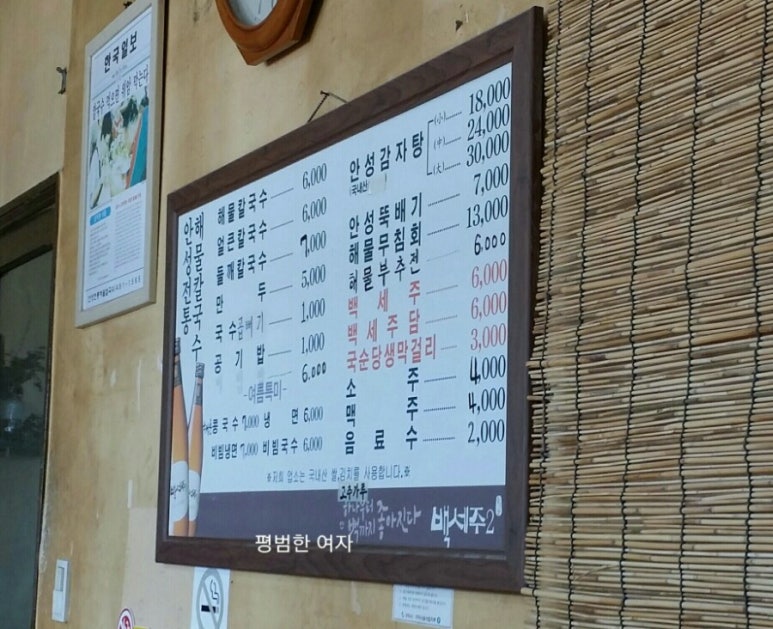 한국일보
안성전통
해물칼국수
해물칼국수 6,000
얼큰칼국수 6,000
들깨칼국수 7,000
만두 5,000
국수곱빼기 1,000
공기밥 1,000
6,000
-여름특미-
콩국수 7,000 냉면 6,000
비빔냉면 7,000 비빔국수 6,000
안성감자탕 (小) 18,000
(국내산) (中) 24,000
(大) 30,000
안성뚝배기 7,000
해물무침회 13,000
해물부추전 6,000
백세주 6,000
백세주담 6,000
국순당생막걸리 3,000
소주 4,000
맥주 4,000
음료수 2,000
※저희 업소는 국내산 쌀,김치를 사용합니다.※
고추가루
좋아진다
백세주
평범한 여자